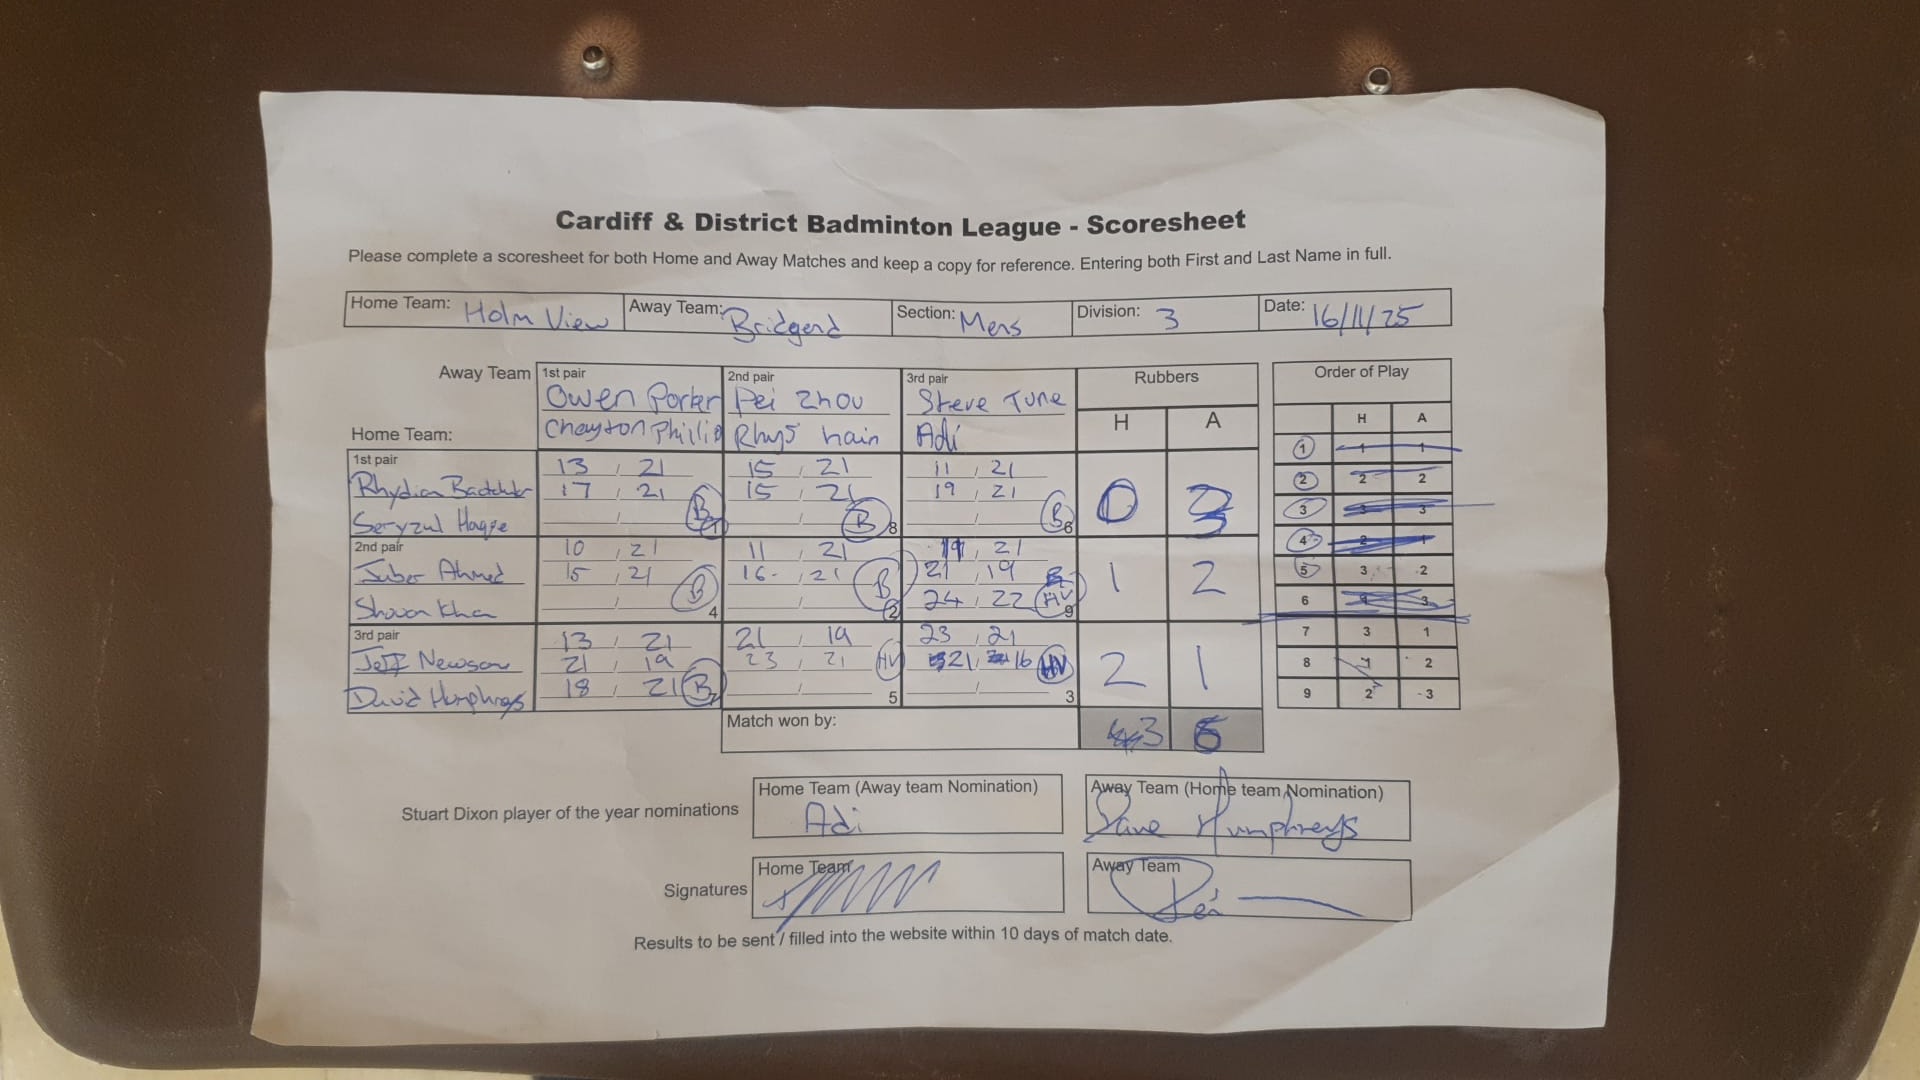 Cardiff & District Badminton League - Scoresheet
Please complete a scoresheet for both Home and Away Matches and keep a copy for reference. Entering both First and Last Name in full.
Home Team: Holm View Away Team: Bridgend Section: Mens Division: 3 Date: 16/11/25
Away Team 1st pair 2nd pair 3rd pair Rubbers Order of Play
Owen Porker Pei Zhou Steve Tune
Home Team: Chayton Phillip Rhys hain Adi H A H A
1st pair 13 / 21 15 / 21 11 / 21 1 1 1
Rhydian 17 / 21 B 15 / 21 B 19 / 21 B 0 3 2 2 2
Haqye / 1 / 8 / 6 3 3 3
2nd pair 10 / 21 11 / 21 19 / 21 4 2 1
Juber Ahmed 15 / 21 B 16 / 21 B 21 / 19 1 2 5 3 2
Shovon Kha / 4 / 2 24 / 22 HV 9 6 1 3
3rd pair 13 / 21 21 / 19 23 / 21 7 3 1
Jeff Newsom 21 / 19 23 / 21 HV 21 / 16 HV 2 1 8 1 2
David Humphreys 18 / 21 B 7 / 5 / 3 9 2 3
Match won by: 3 6
Stuart Dixon player of the year nominations
Home Team (Away team Nomination) Away Team (Home team Nomination)
Adi Dave Humphreys
Signatures Home Team Away Team
Pei
Results to be sent / filled into the website within 10 days of match date.